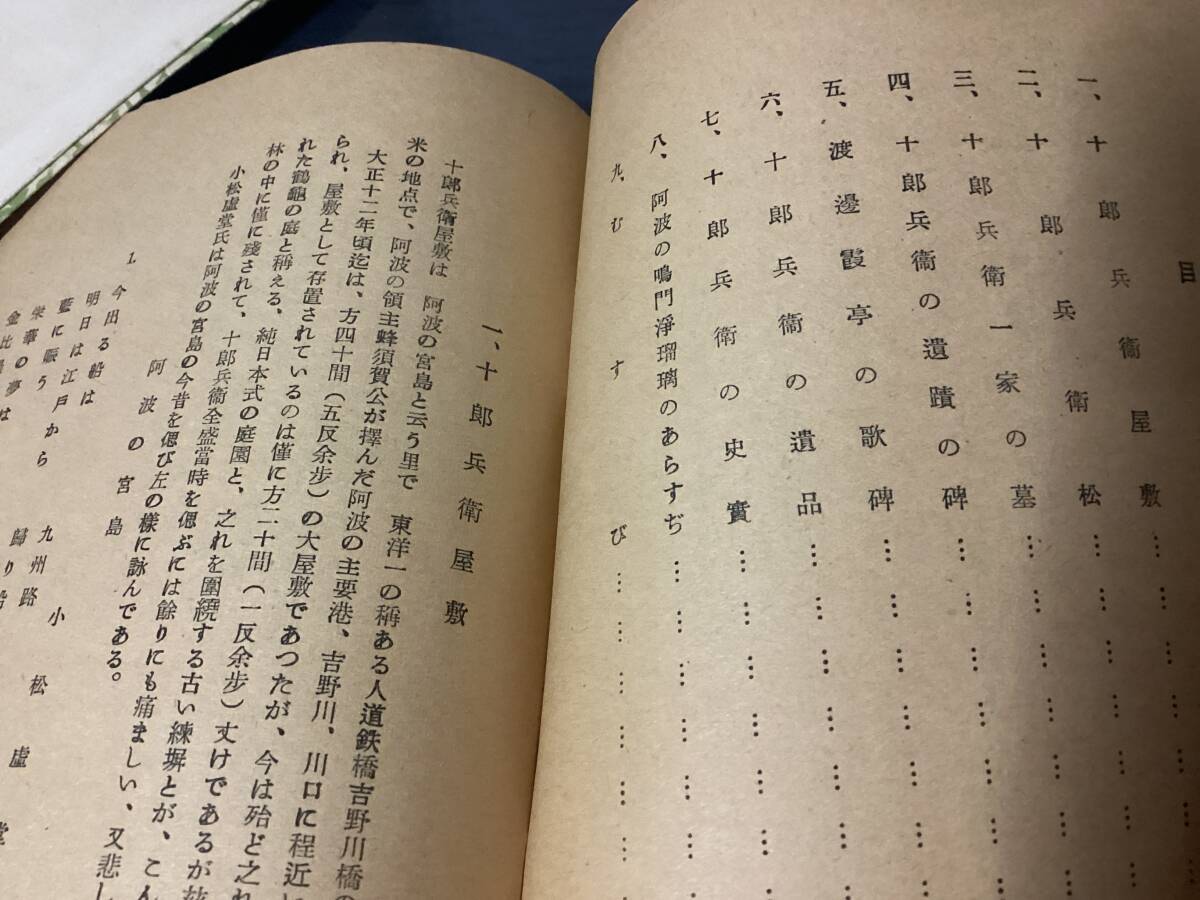 目
一、十郎兵衞屋敷……………
二、十郎兵衛松……………
三、十郎兵衛一家の墓……………
四、十郎兵衞の遺蹟の碑……………
五、渡邊霞亭の歌碑……………
六、十郎兵衞の遺品……………
七、十郎兵衛の史實……………
八、阿波の鳴門淨瑠璃のあらすぢ……………
九、むすび……………
一、十郎兵衛屋敷
十郎兵衛屋敷は 阿波の宮島と云う里で 東洋一の稱ある人道鉄橋吉野川橋の
米の地点で、阿波の領主蜂須賀公が擇んだ阿波の主要港、吉野川、川口に程近い
大正十二年頃迄は、方四十間(五反余步)の大屋敷であつたが、今は殆ど之れ
られ、屋敷として存置されているのは僅に方二十間(一反余步)丈けであるが
れた鶴龜の庭と稱える、純日本式の庭園と、之れを圍繞する古い練塀とが、こん
林の中に僅に殘されて、十郎兵衞全盛當時を偲ぶには餘りにも痛ましい、又悲し
小松虛堂氏は阿波の宮島の今昔を偲び左の樣に詠んである。
阿波の宮島
小松虛堂
1. 今出る船は 九州路
明日は江戸から 歸り船
藍に賑う
栄華の夢は